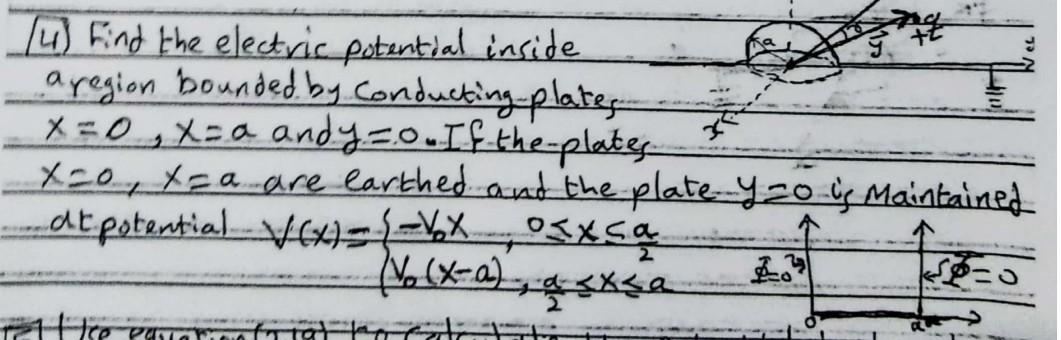 [4] Find the electric potential inside
a region bounded by conducting plates
x=0, x=a and y=0. If the plates
x=0, x=a are earthed and the plate y=0 is Maintained
at potential V(x)= { -V₀x , 0≤x≤a/2
{ V₀(x-a) , a/2 ≤x≤a
a
r
y
+q
x
Φ=0
Φ=0
0
a